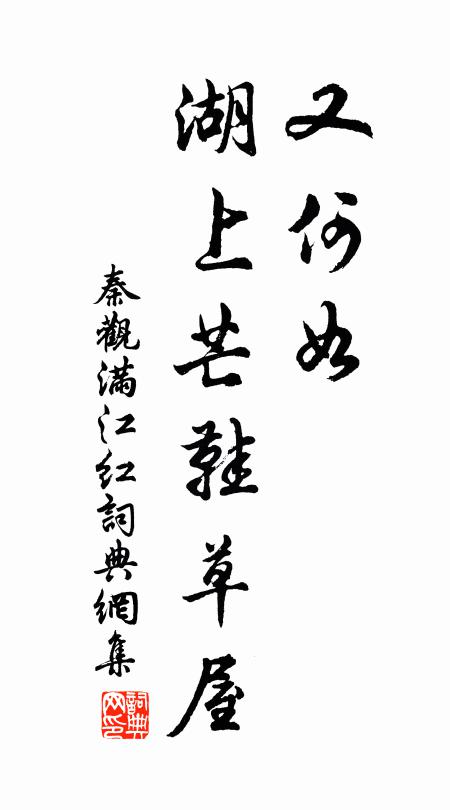 又何如
湖上芒鞋草屋
秦觀滿江紅詞典網集
詞典网印